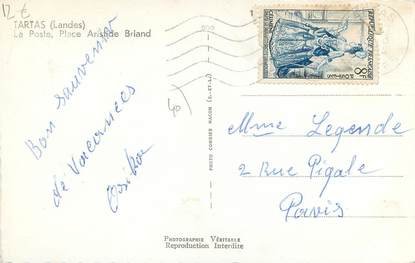 12 €
TARTAS (Landes)
La Poste, Place Aristide Briand
Bon souvenir
de Vacances
40
PHOTO COMBIER MACON (S.-ET-L.)
REPUBLIQUE FRANÇAISE
8F
Mme Legende
2 Rue Pigale
Paris
PHOTOGRAPHIE VÉRITABLE
Reproduction Interdite